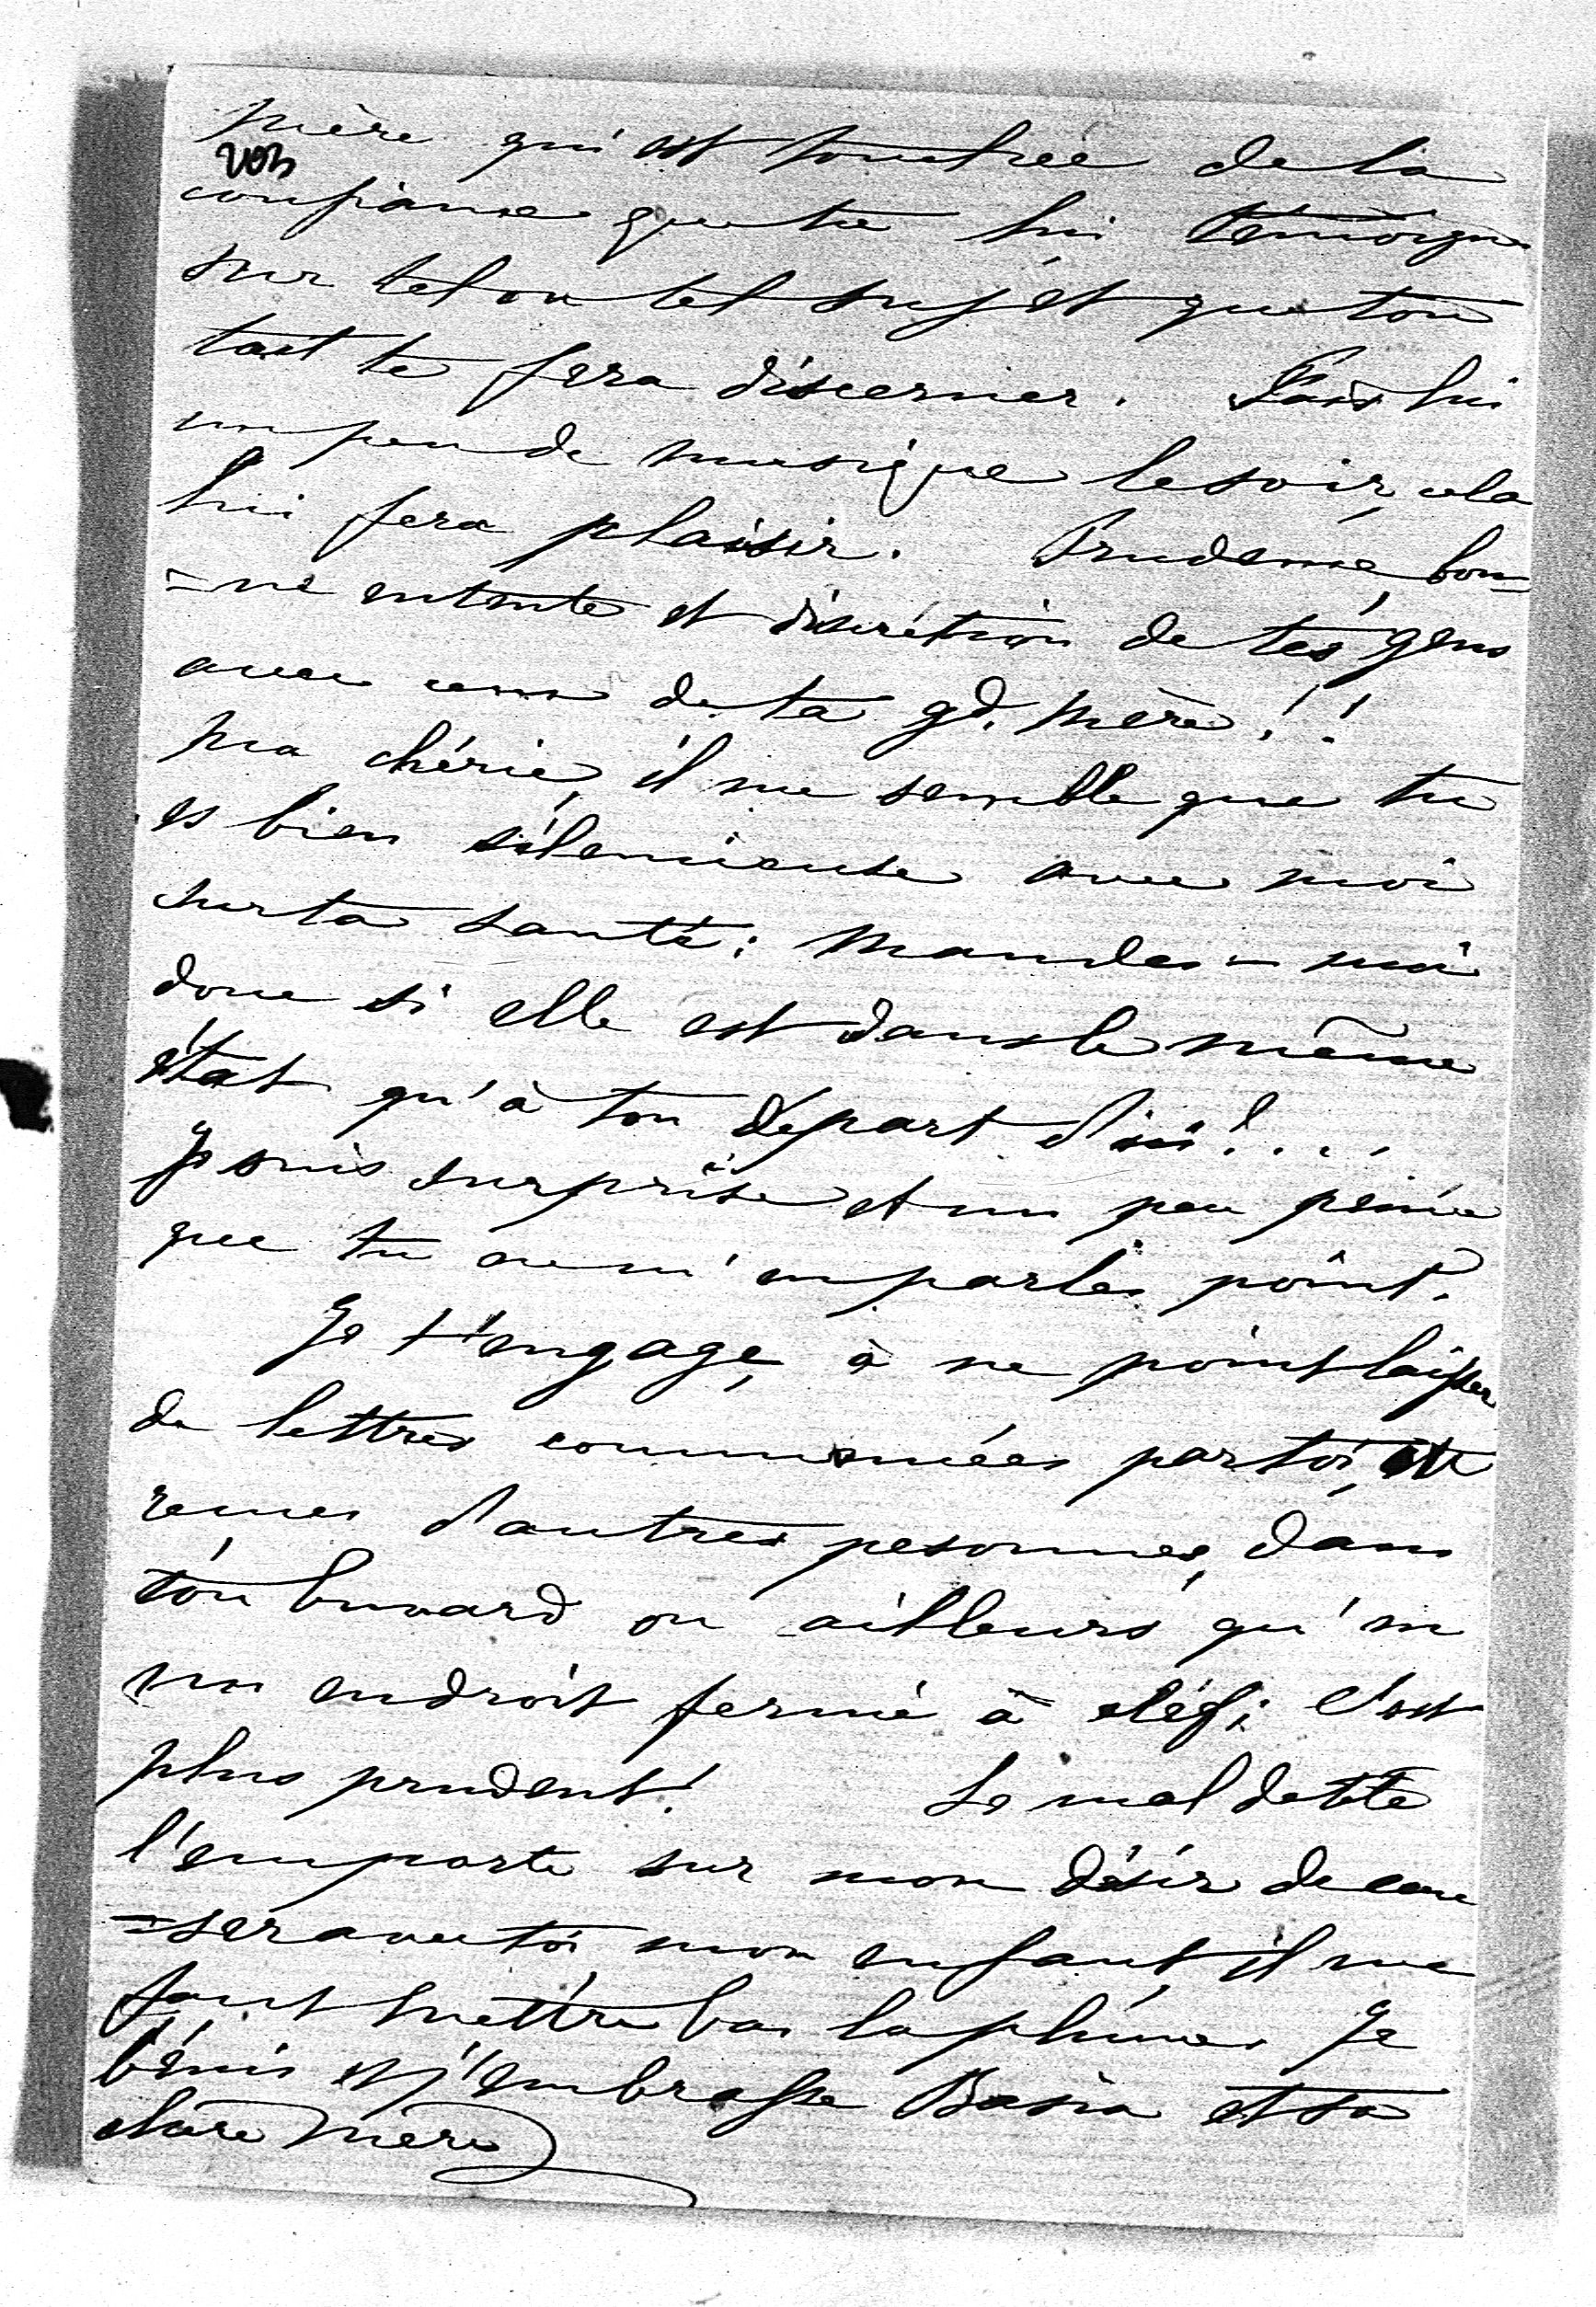 mère qui est touchée de la
203
confiance que tu lui témoignes
sur tel ou tel sujet que ton
tact te fera discerner. Fais lui
un peu de musique le soir, cela
lui fera plaisir. Prudence, bon=
=ne entente et discrétion de tes gens
avec ceux de ta gd. mère!!
Ma chérie, il me semble que tu
es bien silencieuse avec moi
sur ta santé: Mandes-moi
donc si elle est dans le même
état qu'à ton départ d'ici!...
Je suis surprise et un peu peinée
que tu ne m'en parles point.
Je t'engage, à ne point laisser
de lettres commencées par toi, et
reçues d'autres pesonnes, dans
ton buvard ou ailleurs qu'en
un endroit fermé à cléf; c'est
plus prudent! Le mal de tête
l'emporte sur mon désir de cau
=ser avec toi, mon enfant, il me
faut mettre bas la plume. Je
bénis et j'embrasse Basia et sa
chère mère